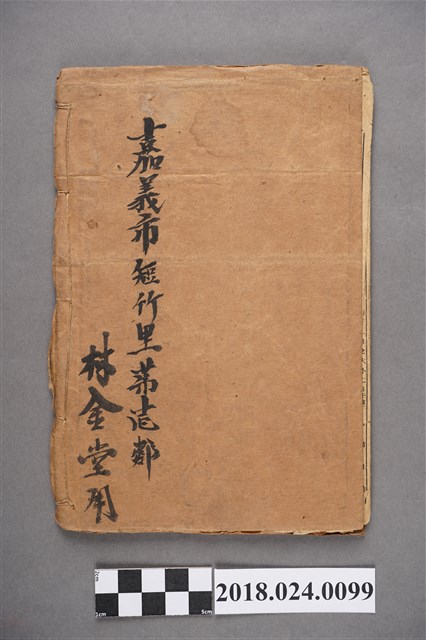 嘉義市短竹里第壱鄰
林金堂用
2018.024.0099
2cm
1cm
5cm